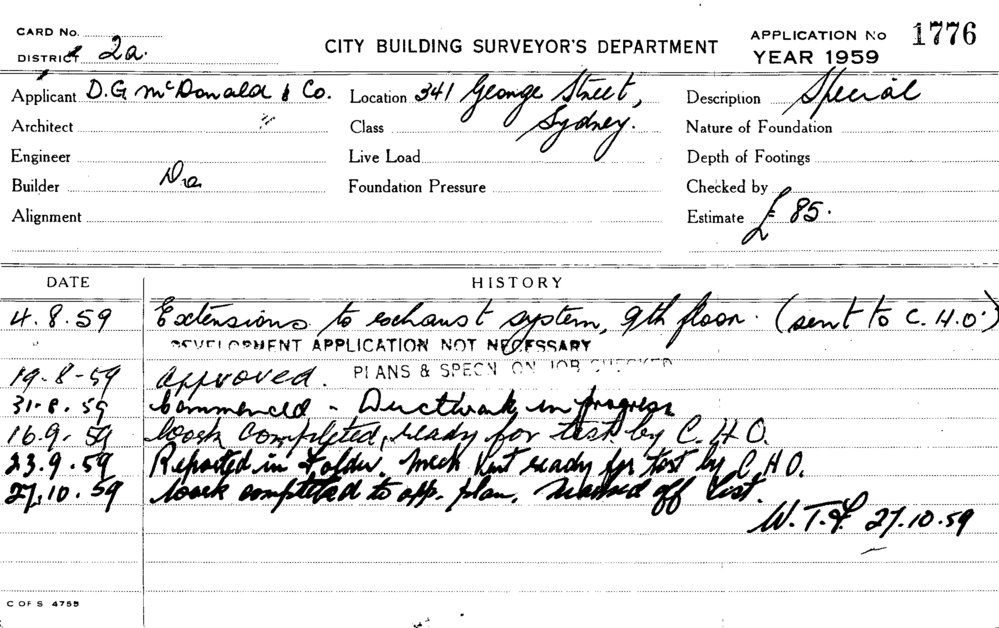 CARD No.
DISTRICT 2a.
CITY BUILDING SURVEYOR'S DEPARTMENT
APPLICATION No 1776
YEAR 1959
Applicant D.G McDonald & Co. Location 341 George Street, Description Special
Architect Class Sydney. Nature of Foundation
Engineer Live Load Depth of Footings
Builder Do Foundation Pressure Checked by
Alignment Estimate £ 85.
DATE HISTORY
4.8.59 Extensions to exhaust system, 9th floor. (sent to C.H.O.)
DEVELOPMENT APPLICATION NOT NECESSARY
19-8-59 approved. PLANS & SPECN ON JOB CHECKED
31-8.59 Commenced - Ductwork in progress
16.9.59 Work completed, ready for test by C.H.O.
23.9.59 Reported in Folder. Mech Vent ready for test by C.H.O.
27.10.59 Work completed to app. plan. Marked off list.
W.T.F. 27.10.59
C OF S 4755